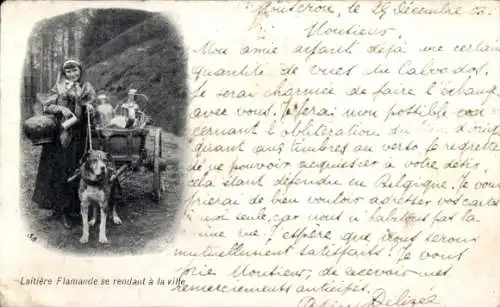 Moutcrou, le 29 Décembre 03.
Moutieurs.
Mon amie ayant déjà une certain
quantité de vues du Calvados.
Je serai charmée de faire l'échange
avec vous. J'ferai mon possible con-
cernant l'oblitération du d'orig
quant aux timbres au verso. Je regrette
de ne pouvoir acquiescer à votre désir,
cela étant défendu en Belgique. Je vous
prierai de bien vouloir adresser vos cartes
à moi seule, car nous n'habitons pas la
même rue. J'espère que nous serons
mutuellement satisfaits. Je vous
prie Moutieur, de recevoir mes
remerciements anticipés.
Delizée
Laitière Flamande se rendant à la ville